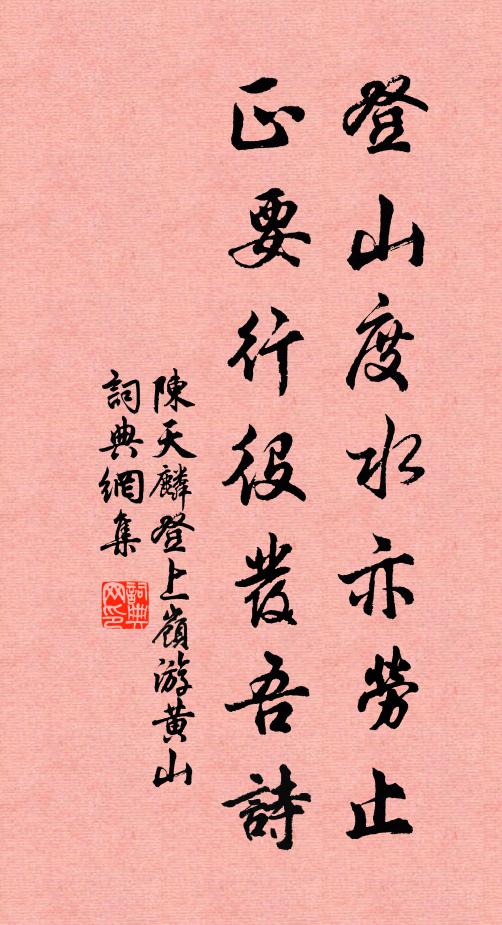 登山度水亦勞止
正要行役發吾詩
陳天麟登上嶺游黃山
詞典網集
詞典
网印